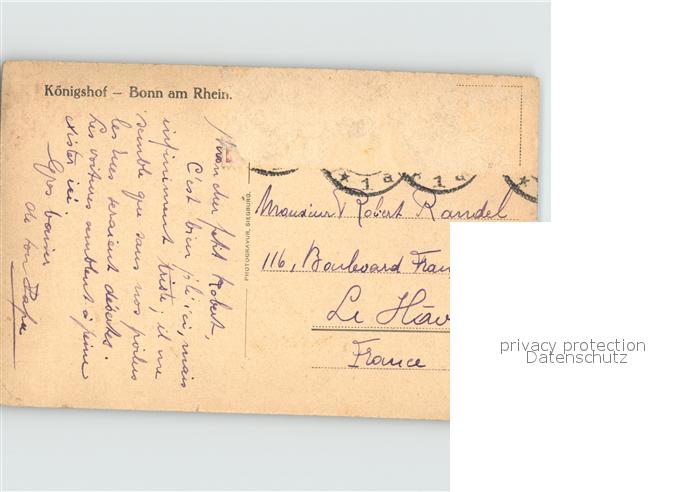 Königshof – Bonn am Rhein.
Mon cher petit Robert,
C'est bien joli ici, mais
infiniment triste; il me
semble que sans nos poilus
les rues seraient désertes.
Les voitures semblent à peine
exister ici.
Gros baiser
de ton Papa
PHOTOGRAVUR, SIEGBURG.
* 1 a
* 1 a
*
Monsieur Robert Randel
116, Boulevard Fran
Le Hav
France
privacy protection
Datenschutz